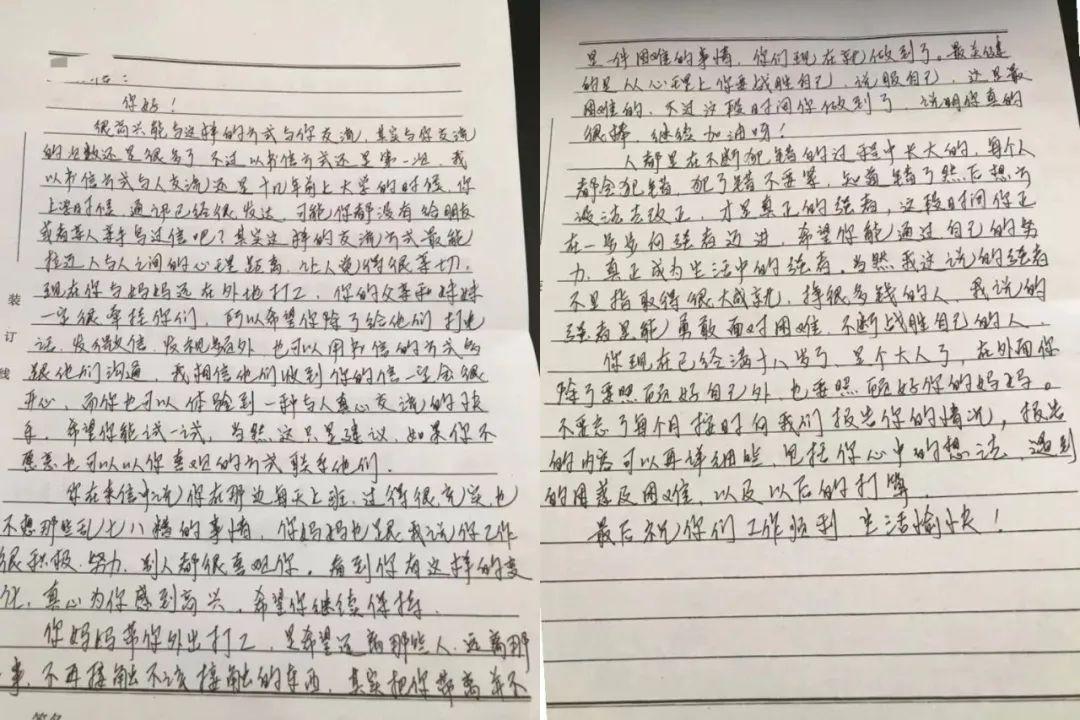 你好!
很高兴能与这样的方式与你交流,其实与你交流
的次数还是很多了,不过以书信方式还是第一次,我
以书信方式与人交流还是十几年前上大学的时候,你
上学时候,通讯已经很发达,可能你都没有给朋友
或者某人亲手写过信吧?其实这样的交流方式最能
拉近人与人之间的心理距离,让人觉得很亲切。
现在你与妈妈远在外地打工,你的父亲和妹妹
一定很牵挂你们,所以希望你除了给他们打电
话、发微信、发视频外,也可以用书信的方式的
跟他们沟通,我相信他们收到你的信一定会很
开心,而你也可以体验到一种与人真心交流的快
乐,希望你能试一试,当然这只是建议,如果你不
愿意也可以以你喜欢的方式联系他们。
你在来信中说你在那边每天上班,过得很充实也
不想那些乱七八糟的事情,你妈妈也是跟我说你工作
很积极、努力,别人都很喜欢你。看到你有这样的变
化,真心为你感到高兴,希望你继续保持。
你妈妈带你外出打工,是希望远离那些人、远离那
事,不再接触不该接触的东西,其实把你带离并不
装
订
线
签名
是件困难的事情,你们现在就做到了。最关键
的是从心理上你要战胜自己,说服自己,这是最
困难的,不过这段时间你做到了,说明你真的
很棒,继续加油呀!
人都是在不断犯错的过程中长大的,每个人
都会犯错,犯了错不要紧,知道错了然后想方
设法去改正,才是真正的强者,这段时间你正
在一步步向强者迈进,希望你能通过自己的努
力,真正成为生活中的强者。当然我这说的强者
不是指取得很大成就,挣很多钱的人,我说的
强者是能勇敢面对困难,不断战胜自己的人。
你现在已经满十八岁了,是个大人了,在外面你
除了要照顾好自己外,也要照顾好你的妈妈。
不要忘了每个月按时向我们报告你的情况,报告
的内容可以再详细些,包括你心中的想法、遇到
的困惑及困难,以及以后的打算。
最后祝你们工作顺利、生活愉快!